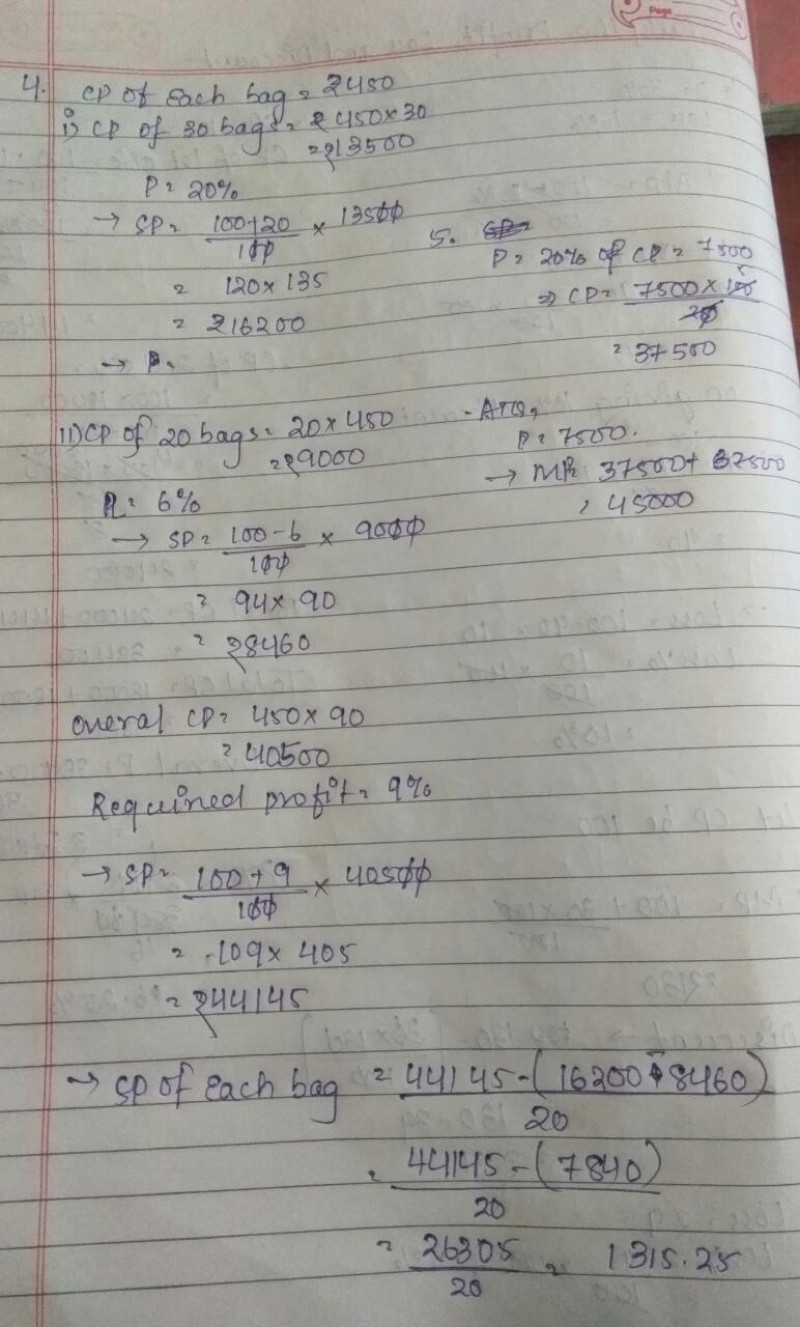 Page
4. CP of each bag = ₹450
i) CP of 30 bags = ₹ 450×30
= ₹13500
P = 20%
→ SP = 100+20/100 × 13500
= 120×135
= ₹16200
→ P.
ii) CP of 20 bags = 20×450
= ₹9000
l = 6%
→ SP = 100-6/100 × 9000
= 94×90
= ₹8460
Overal CP = 450×90
= 40500
Required profit = 9%
→ SP = 100+9/100 × 40500
= 109×405
= ₹44145
→ SP of each bag = 44145-(16200+8460)/20
= 44145-(7840)/20
= 26305/20 = 1315.25
5.
P = 20% of CP = 7500
⇒ CP = 7500×100/20
= 37500
- ATQ,
P = 7500.
→ MP = 37500+
= 45000